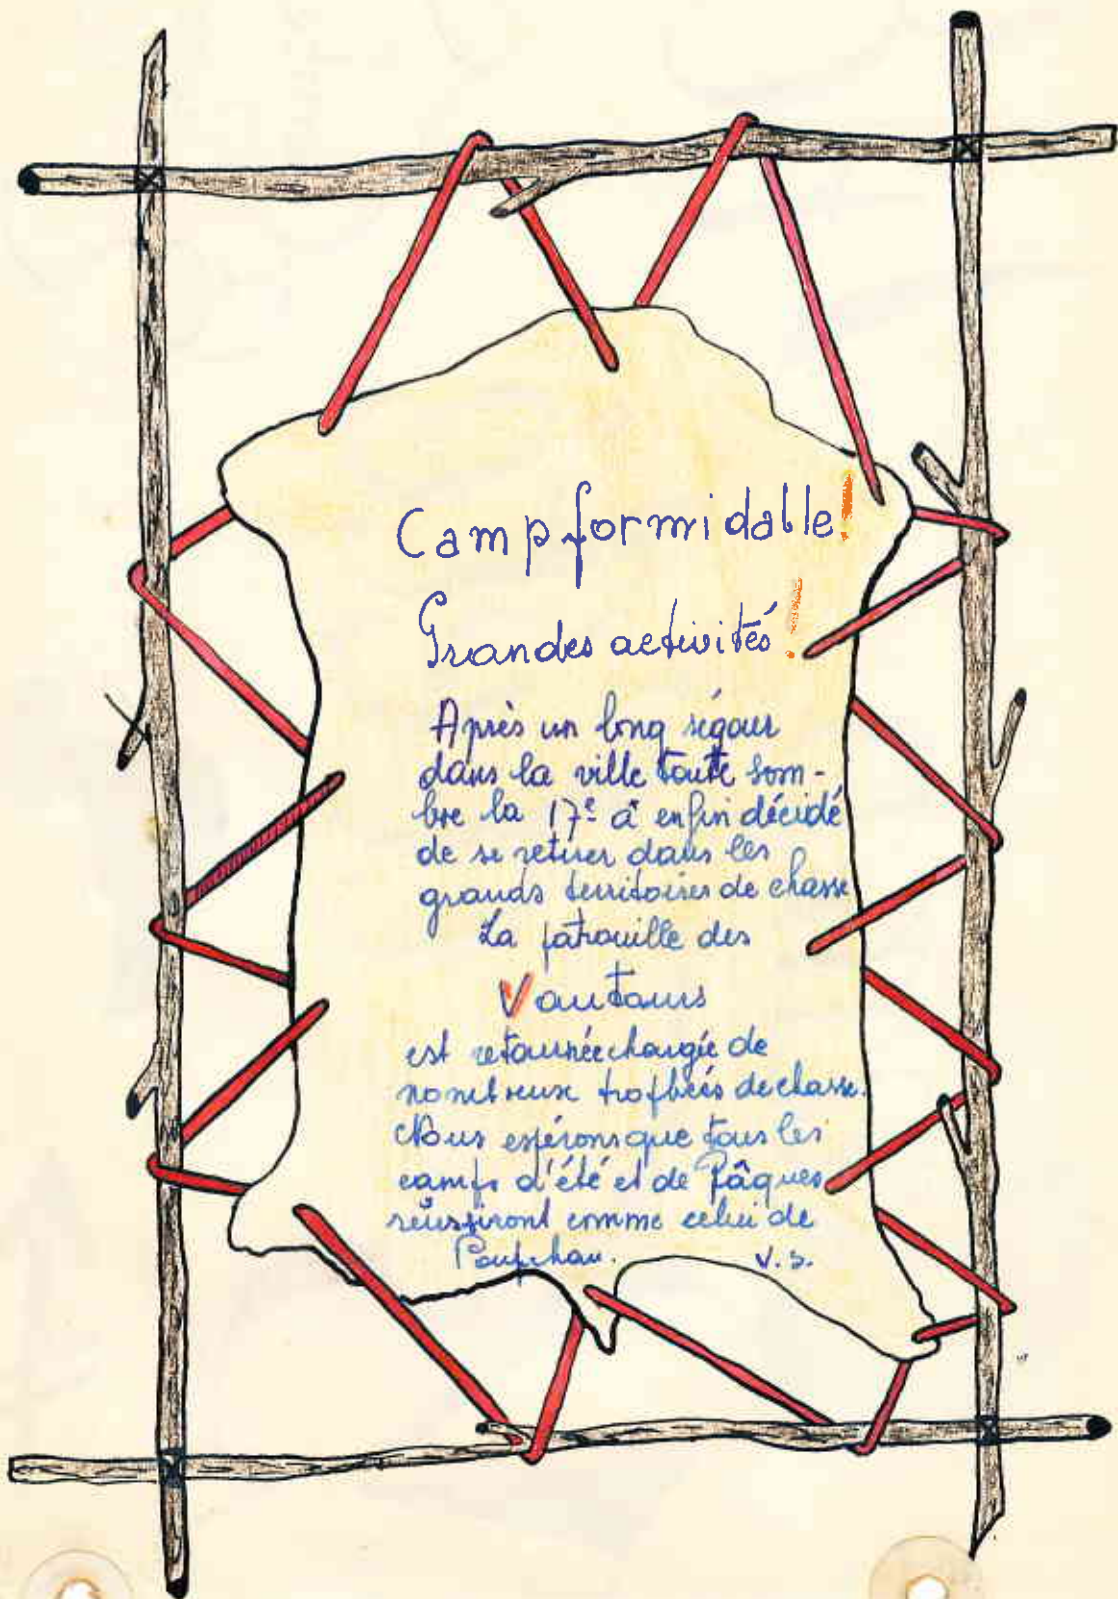 Camp formidable!
Grandes activités!
Après un long séjour
dans la ville toute som-
bre la 17e a enfin décidé
de se retirer dans les
grands territoires de chasse
La patrouille des
Vautours
est retournée chargée de
nombreux trophées de chasse.
Nous espérons que tous les
camps d'été et de Pâques
réussiront comme celui de
Poupehan. V.S.